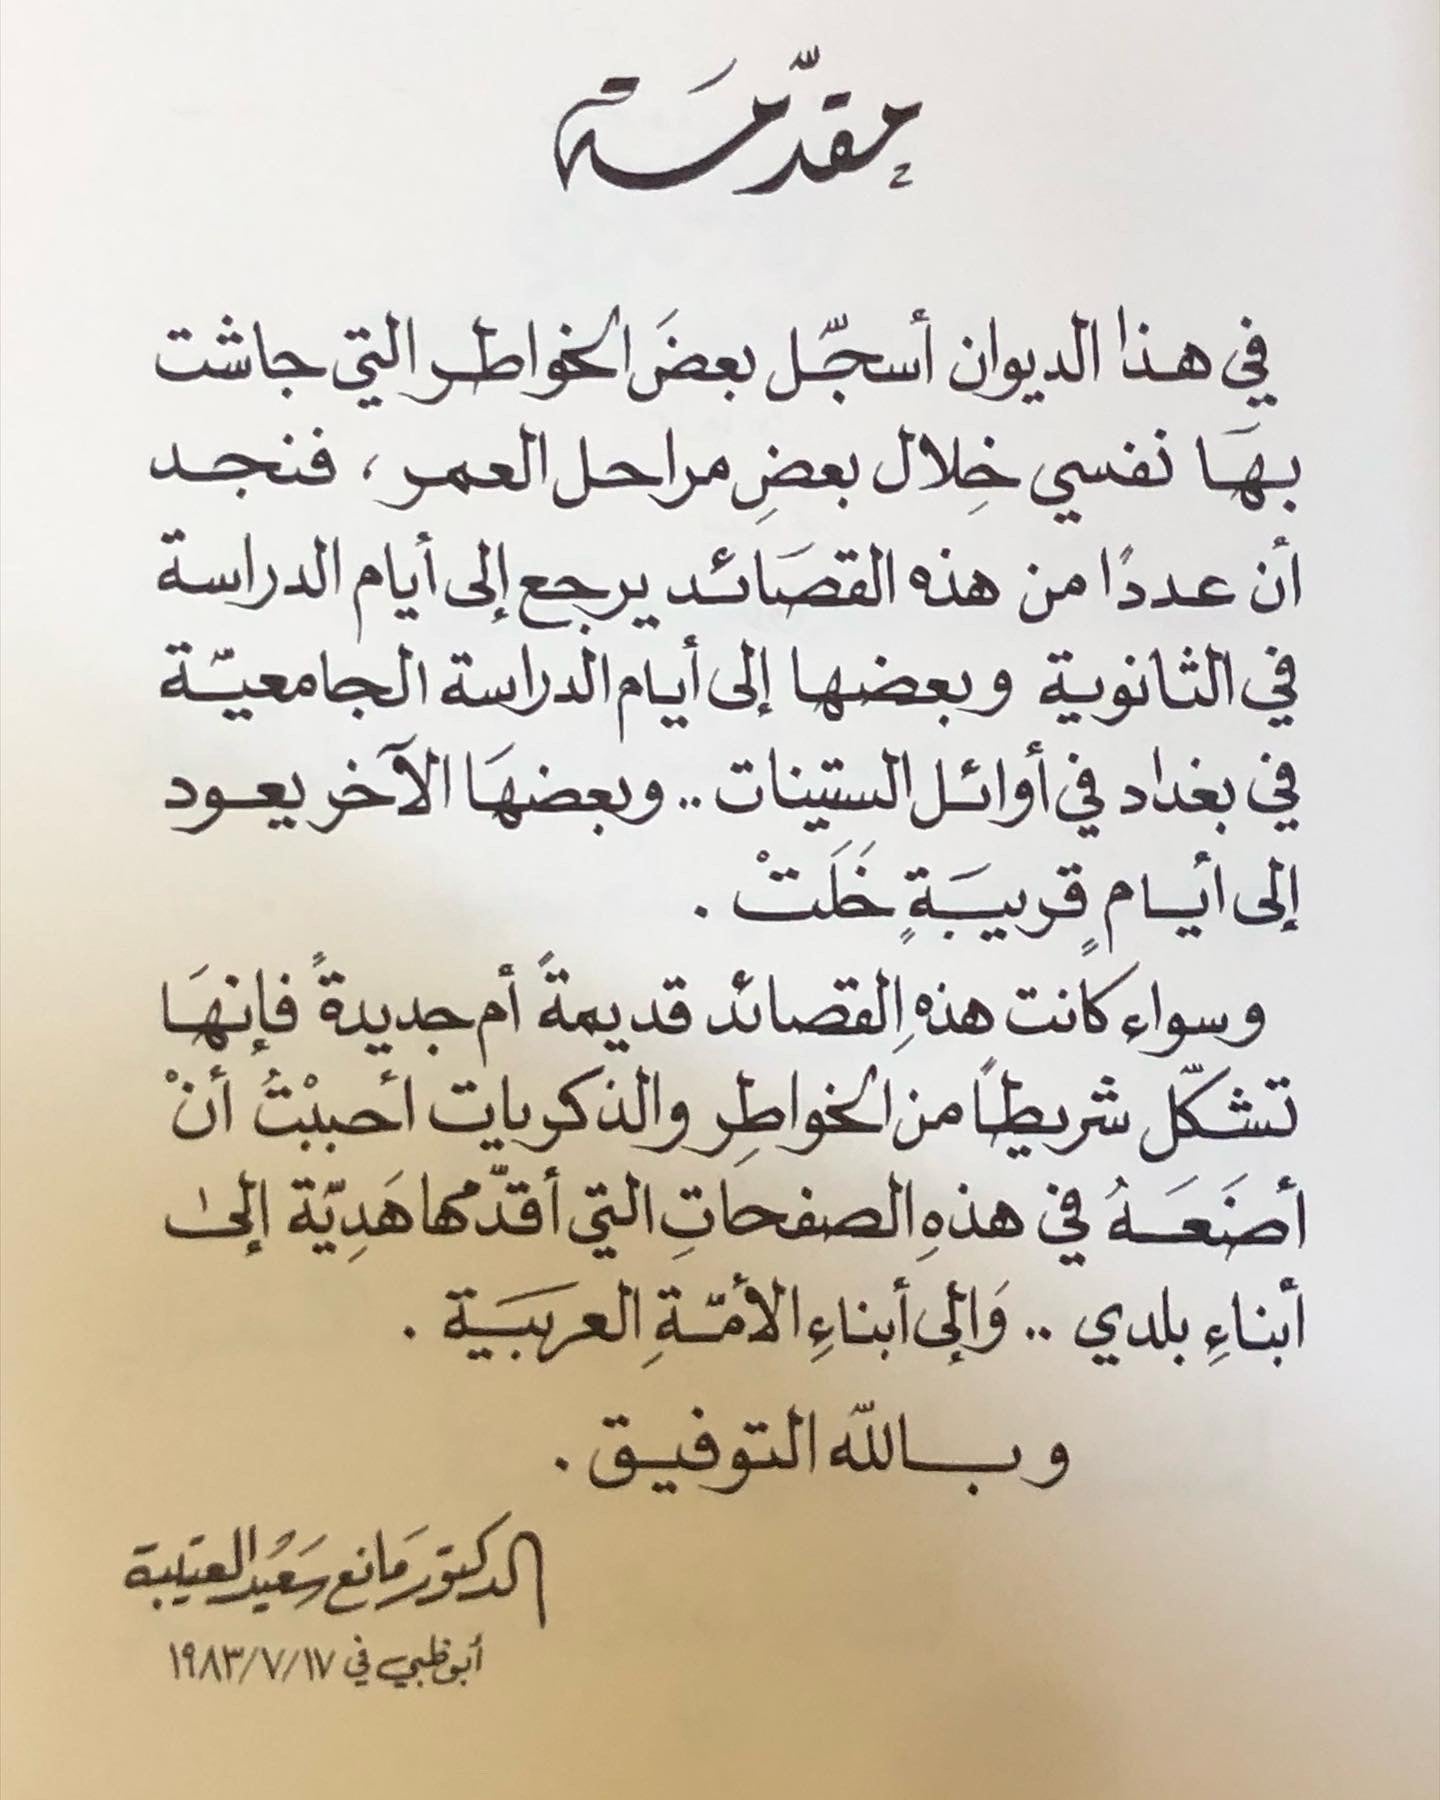 مقدّمَة
في هذا الديوان أسجّل بعضَ الخواطر التي جاشت
بهَا نفسي خِلال بعضِ مراحل العمر ، فنجد
أن عددًا من هذه القصَائد يرجع إلى أيام الدراسة
في الثانوية وبعضها إلى أيام الدراسة الجامعيّة
في بغداد في أوائل الستِينات .. وبعضهَا الآخر يعود
إلى أيام قريبَةٍ خَلَتْ .
وسواء كانت هذهِ القصائد قديمةً أم جديدةً فإنهَا
تشكّل شريطاً من الخواطِر والذكريات أحببْتُ أنْ
أضَعَهُ في هذهِ الصفحاتِ التي أقدّمها هَدِيّة إلى
أبناءِ بلدي .. وَإلى أبناءِ الأمّةِ العربَيَة .
وبالله التوفيق .
الدكتور مَانع سَعيْد العتيبة
أبوظبي في ١٩٨٣/٧/١٧